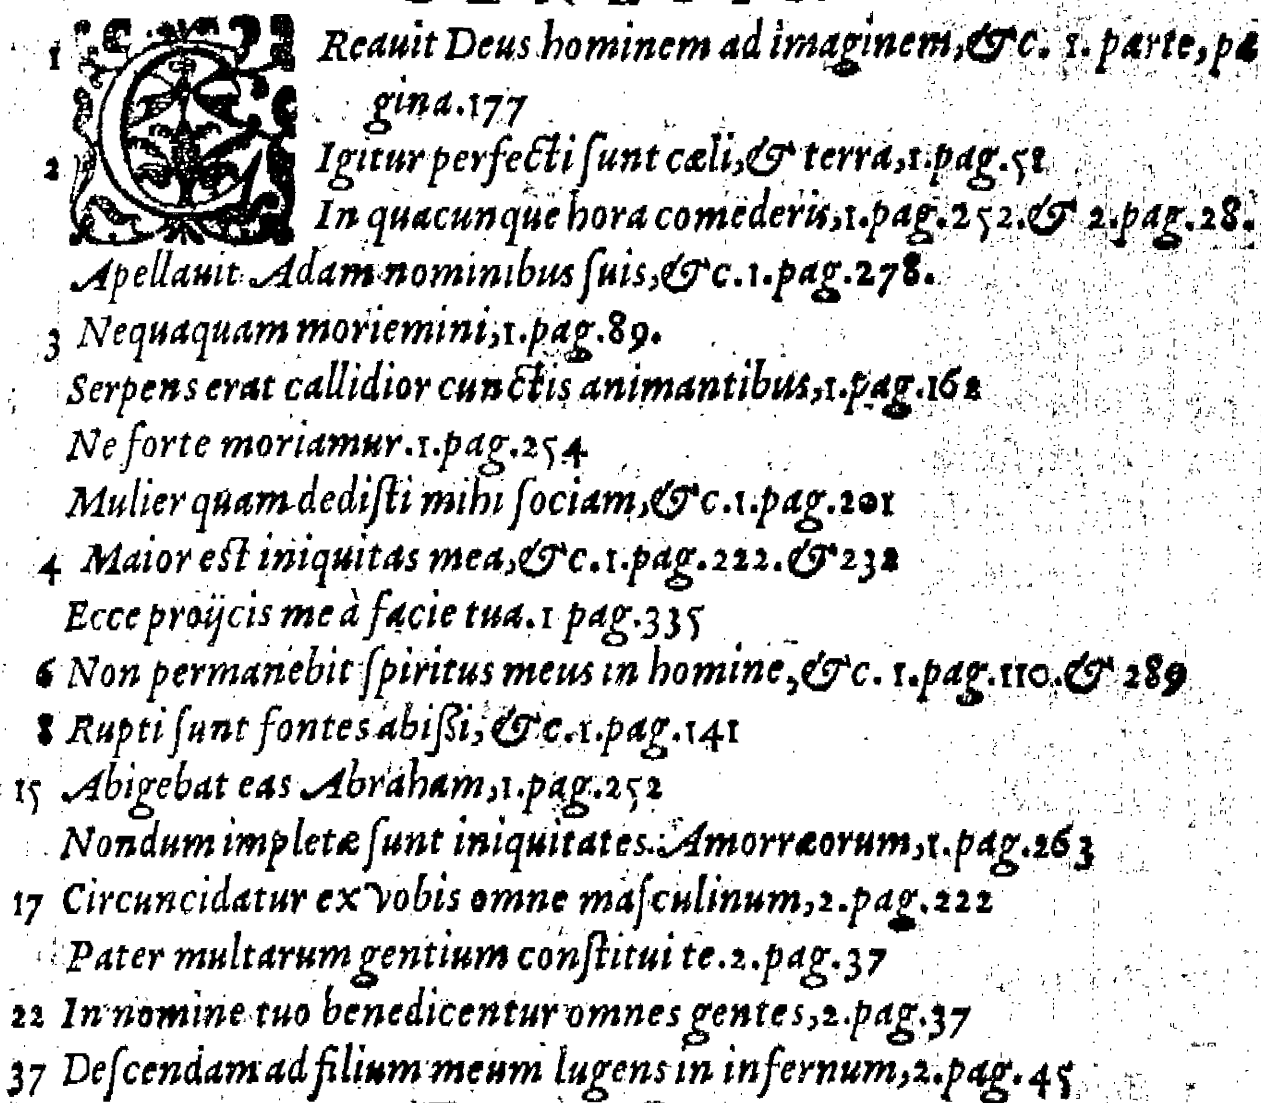 1 CReauit Deus hominem ad imaginem,&c. 1. parte, pa
gina.177
2 Igitur perfecti ſunt cæli,& terra,1.pag.51
In quacunque hora comederis,1.pag.252.& 2.pag.28.
Apellauit Adam nominibus ſuis,&c.1.pag.278.
3 Nequaquam moriemini,1.pag.89.
Serpens erat callidior cunctis animantibus,1.pag.162
Ne forte moriamur.1.pag.254
Mulier quam dediſti mihi ſociam,&c.1.pag.201
4 Maior eſt iniquitas mea,&c.1.pag.222.&232
Ecce proijcis me à facie tua.1 pag.335
6 Non permanebit ſpiritus meus in homine,&c. 1.pag.110.& 289
8 Rupti ſunt fontes abiſsi,&c.1.pag.141
15 Abigebat eas Abraham,1.pag.252
Nondum impletæ ſunt iniquitates Amorræorum,1.pag.263
17 Circuncidatur ex vobis omne maſculinum,2.pag.222
Pater multarum gentium conſtitui te.2.pag.37
22 In nomine tuo benedicentur omnes gentes,2.pag.37
37 Deſcendam ad filium meum lugens in infernum,2.pag.45